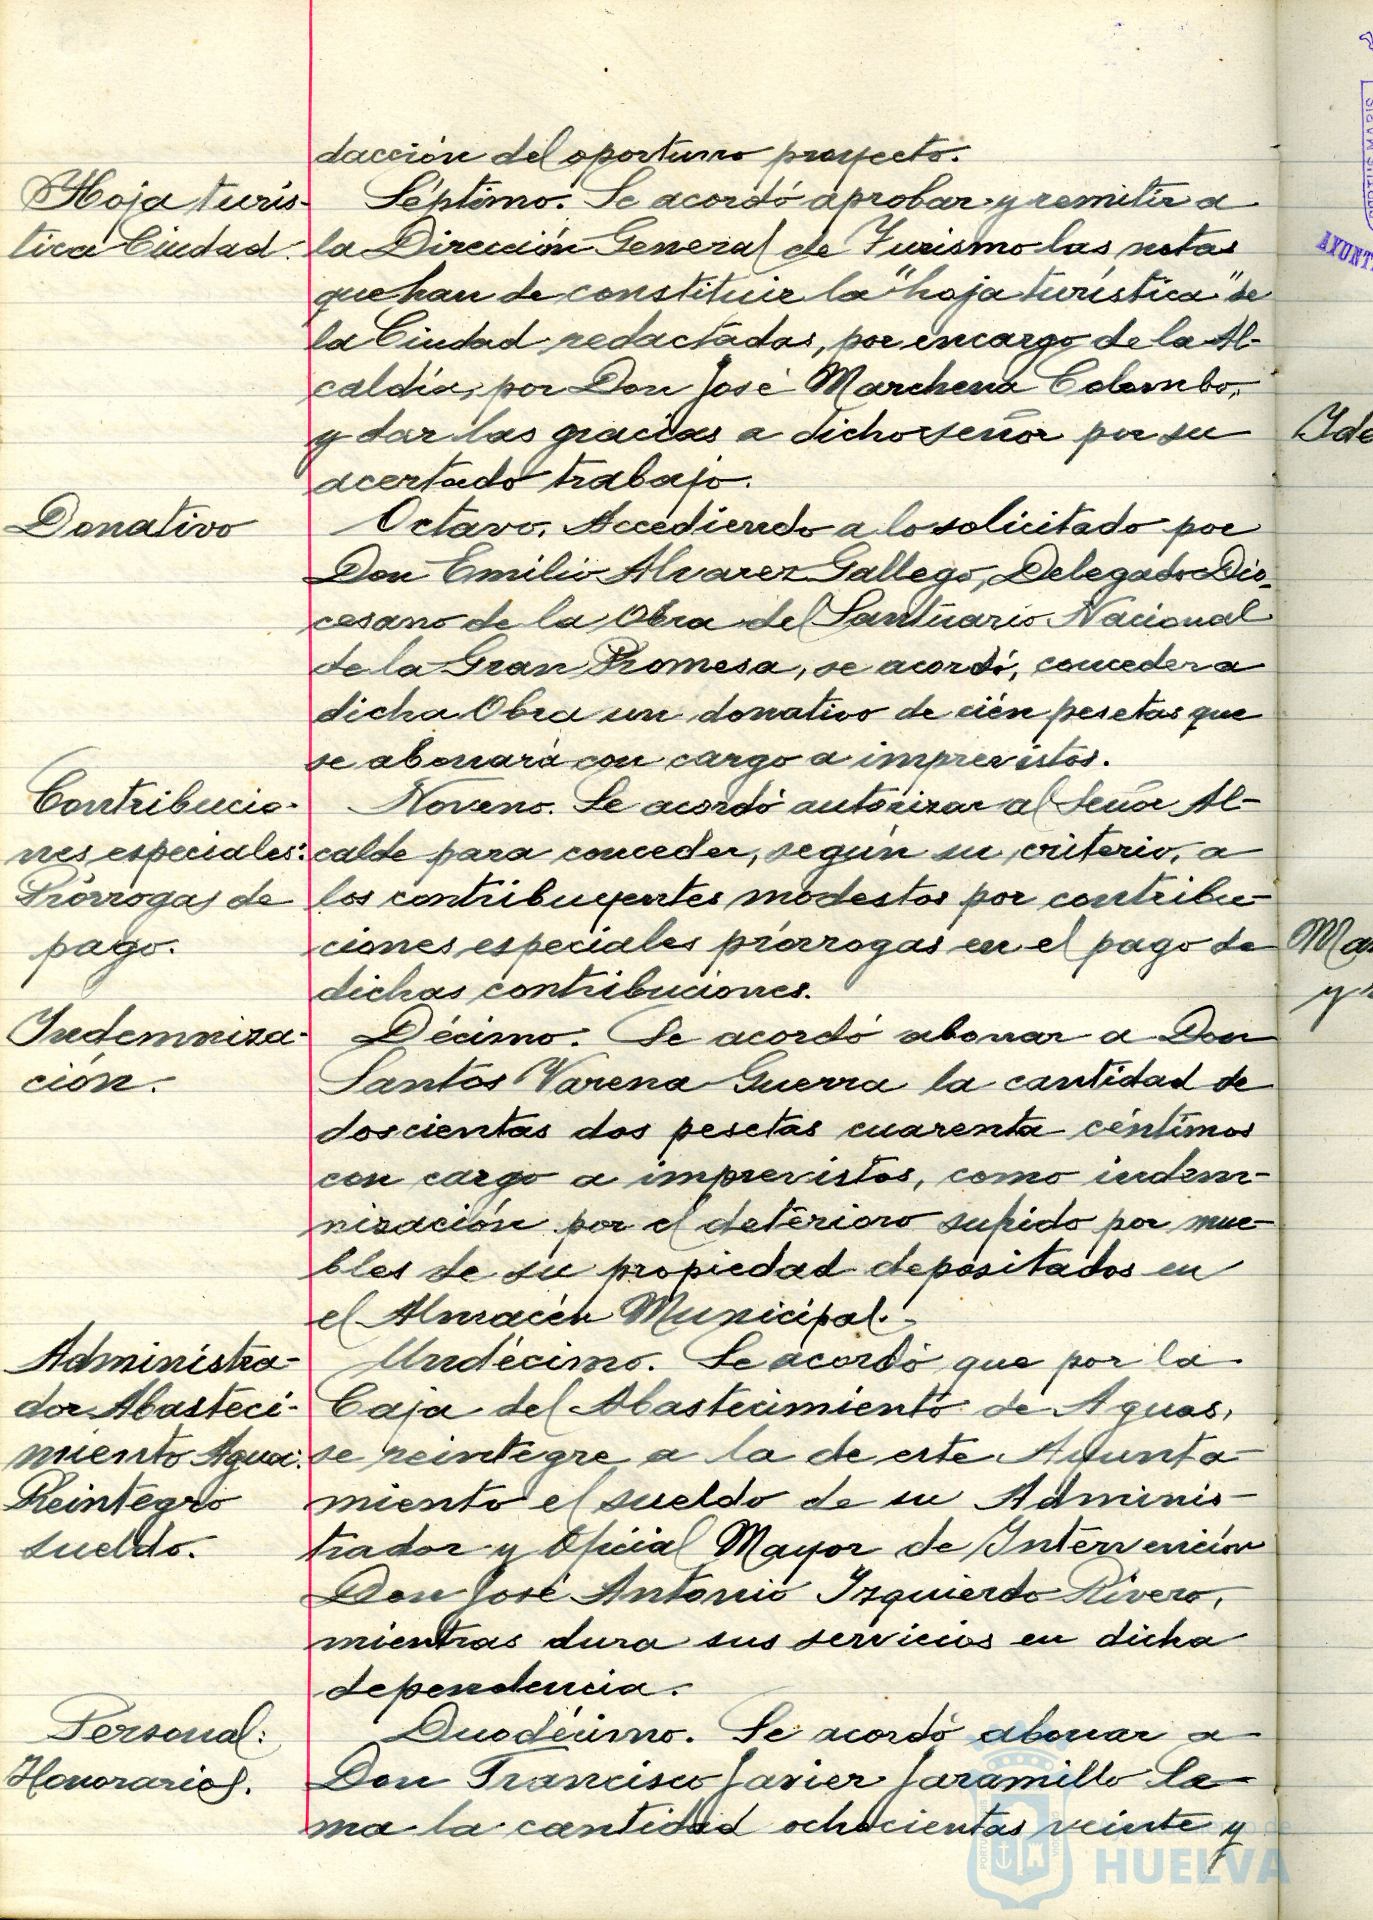 dacción del oportuno proyecto.
Hoja turís-
tica Ciudad.
Séptimo. Se acordó aprobar y remitir a
la Dirección General de Turismo las notas
que han de constituir la "hoja turística" de
la Ciudad redactadas, por encargo de la Al-
caldía, por Don José Marchena Colombo,
y dar las gracias a dicho señor por su
acertado trabajo.
Donativo
Octavo. Accediendo a lo solicitado por
Don Emilio Alvarez Gallego, Delegado Dio-
cesano de la Obra del Santuario Nacional
de la Gran Promesa, se acordó, conceder a
dicha Obra un donativo de cién pesetas que
se abonará con cargo a imprevistos.
Contribucio-
nes especiales:
Prórrogas de
pago.
Noveno. Se acordó autorizar al Señor Al-
calde para conceder, según su criterio, a
los contribuyentes modestos por contribu-
ciones especiales prórrogas en el pago de
dichas contribuciones.
Indemniza-
ción.
Décimo. Se acordó abonar a Don
Santos Varena Guerra la cantidad de
doscientas dos pesetas cuarenta céntimos
con cargo a imprevistos, como indem-
nización por el deterioro sufrido por mue-
bles de su propiedad depositados en
el Almacén Municipal.-
Administra-
dor Abasteci-
miento Agua:
Reintegro
sueldo.
Undécimo. Se acordó que por la
Caja del Abastecimiento de Aguas,
se reintegre a la de este Ayunta-
miento el sueldo de su Adminis-
trador y Oficial Mayor de Intervención
Don José Antonio Izquierdo Rivero,
mientras dura sus servicios en dicha
dependencia.
Personal:
Honorarios.
Duodécimo. Se acordó abonar a
Don Francisco Javier Jaramillo Le-
ma la cantidad ochocientas veinte y
HUELVA